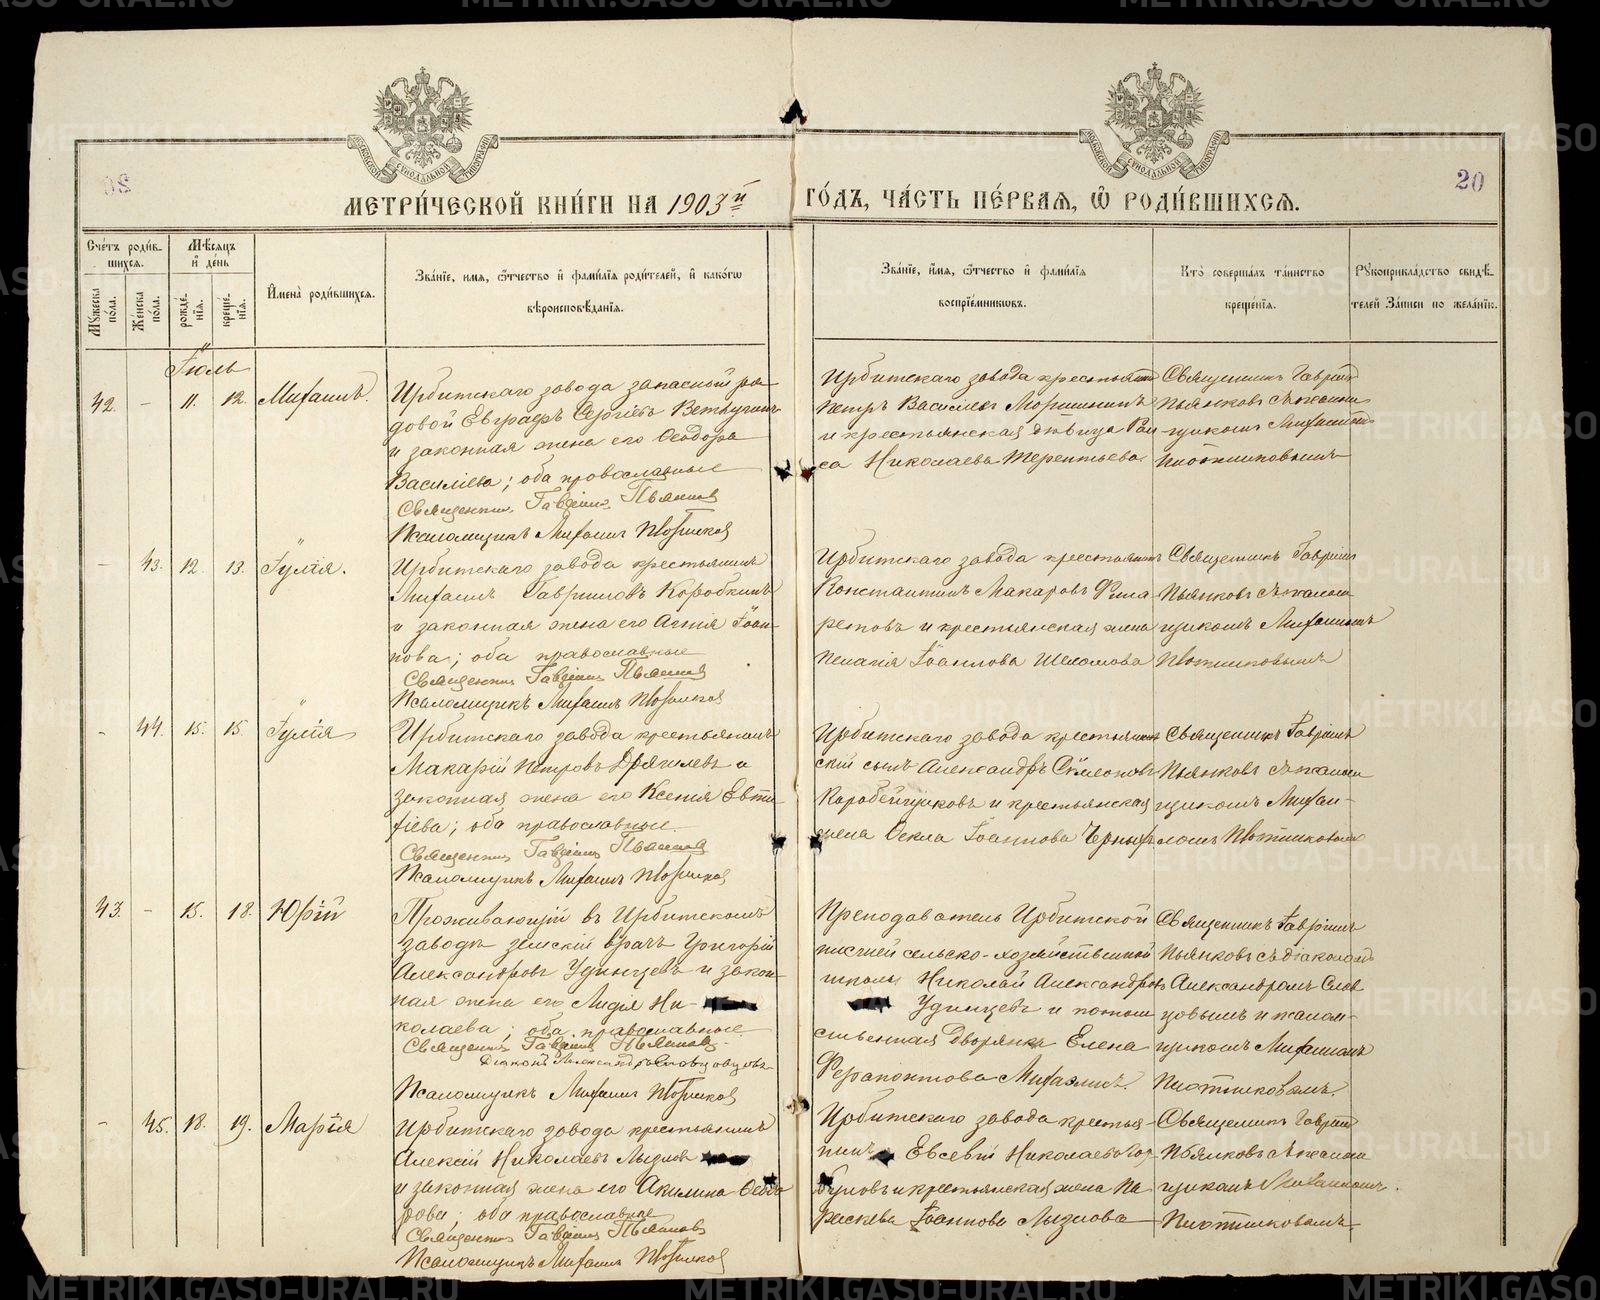 20
МЕТРИ́ЧЕСКОЙ КНИ́ГИ НА 1903й ГО́ДЪ, ЧА́СТЬ ПЕ́РВАѦ, Ѡ РОДИ́ВШИХСѦ.
Сче́тъ роди́в-
шихсѧ.
Мѣ́сѧцъ
и҆ де́нь
Мꙋ́жеска
по́ла.
Же́нска
по́ла.
рожде́-
нїѧ.
креще́-
нїѧ.
И҆мена̀ роди́вшихсѧ.
Зва́нїе, имѧ, ѻ҆́тчество и҆ фами́лїѧ роди́телей, и҆ како́гѡ
вѣроисповѣ́данїѧ.
Зва́нїе, и҆́мѧ, ѻ҆́тчество и҆ фами́лїѧ
воспрїе́мникѡвъ.
Кто̀ соверша́лъ та́инство
креще́нїѧ.
Рꙋкоприкла́дство свидѣ́-
телей За́писи по жела́нїю.
Іюль
42. - 11. 12. Михаилъ.
Ирбитскаго завода запасный ря-
довой Евграфъ Сергіевъ Ветлугинъ
и законная жена его Ѳеодора
Василіева; оба православные
Священникъ Гавріилъ Пьянков
Псаломщикъ Михаилъ Плотников
Ирбитскаго завода крестьянинъ
Петръ Васильевъ
и крестьянская дѣвица Раи-
са Николаева Терентьева.
Священникъ Гавріилъ
Пьянковъ съ псалом-
щикомъ Михаиломъ
Плотниковымъ
- 43. 12. 13. Іулія.
Ирбитскаго завода крестьянинъ
Михаилъ Гавриловъ Коробкинъ
и законная жена его Агнія Іоан-
нова; оба православные
Священникъ Гавріилъ Пьянков
Псаломщикъ Михаилъ Плотников
Ирбитскаго завода крестьянинъ
Константинъ Макаровъ Фила-
ретовъ и крестьянская жена
Пелагія Шеломова
Священникъ Гавріилъ
Пьянковъ съ псалом-
щикомъ Михаиломъ
Плотниковымъ
- 44. 15. 15. Іулія
Ирбитскаго завода крестьянинъ
Макарій Петровъ Дрягилевъ и
законная жена его Ксенія Евти-
хіева; оба православные.
Священникъ Гавріилъ Пьянков
Псаломщикъ Михаилъ Плотников
Ирбитскаго завода крестьян-
скій сынъ Александръ Сѵмеоновъ
Коробейщиковъ и крестьянская
жена Ѳекла Іоаннова Черныхъ
Священникъ Гавріилъ
Пьянковъ съ псалом-
щикомъ Михаи-
ломъ Плотниковымъ
43. - 15. 18. Юрій
Проживающій въ Ирбитскомъ
заводѣ земскій врачъ Григорій
Александровъ Удинцевъ и закон-
ная жена его Лидія Ни-
колаева; оба православные
Священникъ Гавріилъ Пьянков
Діаконъ Александръ Словцовъ
Псаломщикъ Михаилъ Плотников
Преподаватель Ирбитской
низшей сельско-хозяйственной
школы Николай Александровъ
Удинцевъ и потом-
ственная Дворянка Елена
Ферапонтова
Священникъ Гавріилъ
Пьянковъ съ діакономъ
Александромъ Слов-
цовымъ и псалом-
щикомъ Михаиломъ
Плотниковымъ.
- 45. 18. 19. Марія
Ирбитскаго завода крестьянинъ
Алексій Николаевъ Лызловъ
и законная жена его Акилина Ѳеодо-
рова; оба православные
Священникъ Гавріилъ Пьянков
Псаломщикъ Михаилъ Плотников
Ирбитскаго завода крестья-
нинъ Евсевій Николаевъ Гор-
буновъ и крестьянская жена Па-
раскева Іоаннова Лызлова
Священникъ Гавріилъ
Пьянковъ съ псалом-
щикомъ Михаиломъ
Плотниковымъ.
METRIKI.GASO-URAL.RU